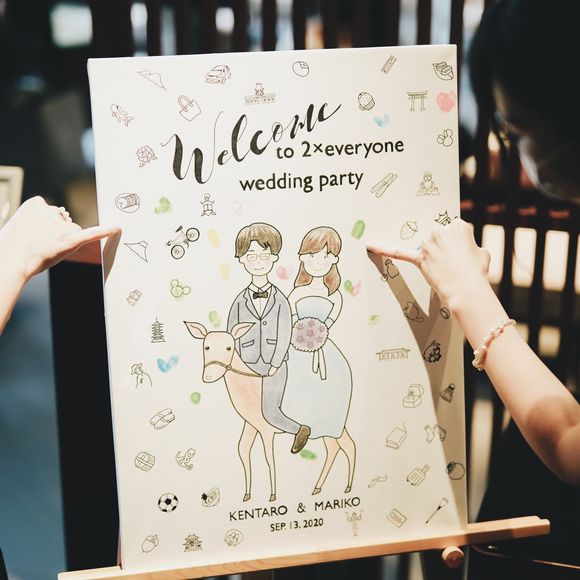 Welcome
to 2×everyone
wedding party
KENTARO & MARIKO
SEP. 13, 2020